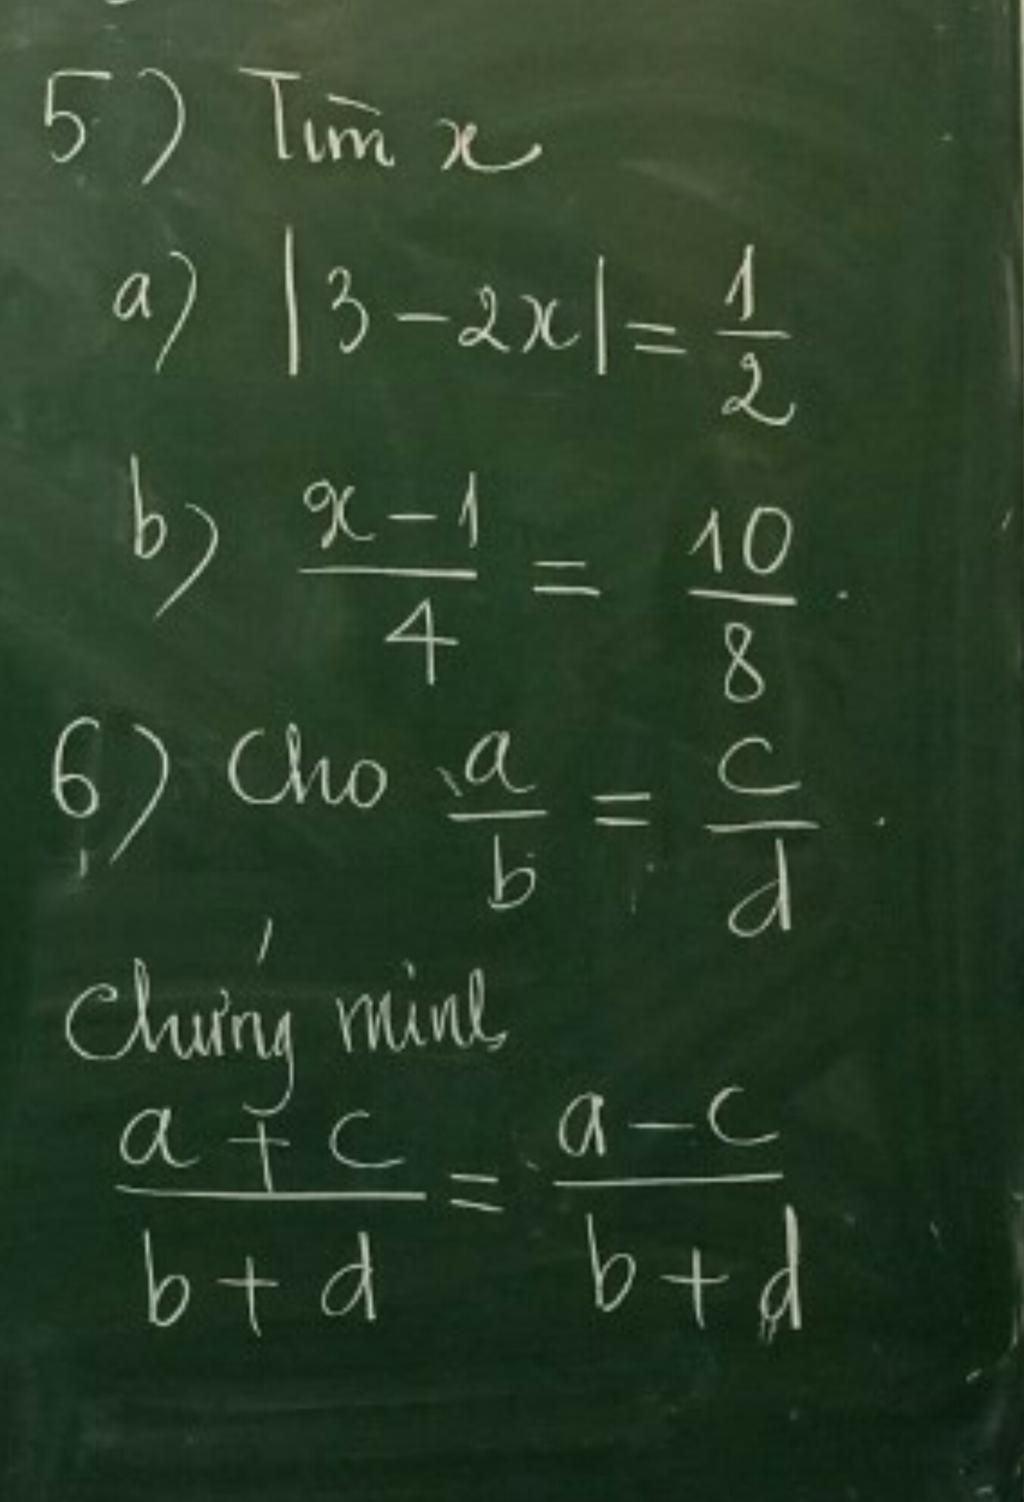 5) Tìm x
a) |3-2x| = 1/2
b) x-1/4 = 10/8.
6) Cho a/b = c/d.
Chứng minh
a+c/b+d = a-c/b+d